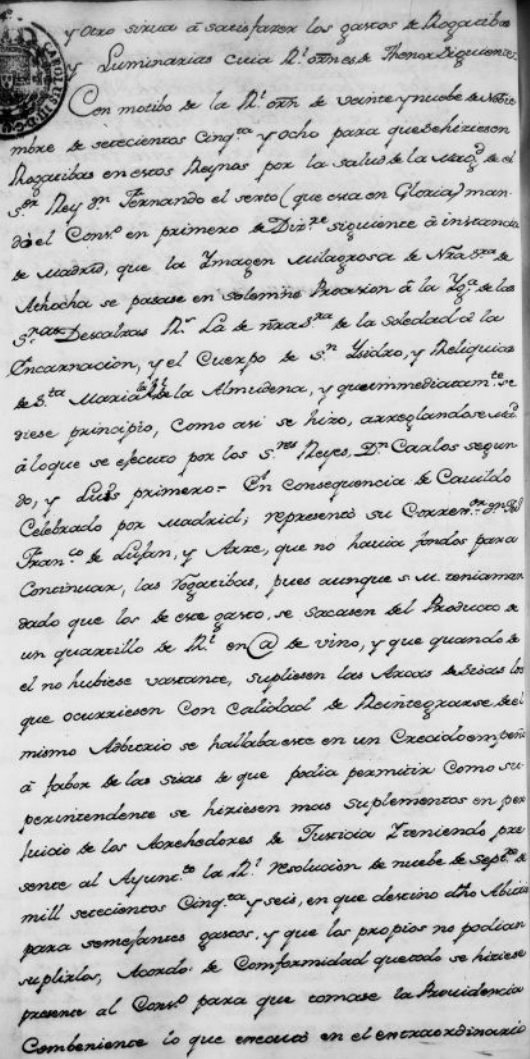 y otro sirua â satisfazer los gastos de Rogatibas
y Luminarias cuia Rl. orn es de Thenor Siguiente
Con motibo de la Rl. orn de veinte y nuebe de Nobie
mbre de setecientos Cinqta. y ocho para que se hiziesen
Rogatibas en estos Reynos por la salud de la Magd. de el
sor. Rey Dn. Fernando el sexto (que esta en Gloria) man-
dò el Conso. en primero de Dizre. siguiente â instancia
de Madrid, que la Ymagen Milagrosa de Nra Sra. de
Athocha se pasase en solemne Procesion â la Ygª. de las
Sras. Descalzas Rs. La de nra Sra. de la Soledad â la
Encarnaciòn, y el Cuerpo de Sn. Ysidro, y Reliquias
de Sta. Maria de la Almudena, y que inmediatamte. se
diese principio, como asi se hizo, arreglandose Md.
â loque se ejecuto por los Sres. Reyes, Dn. Carlos segun
do, y Luis primero = En consequencia de Cauildo
Celebrado por Madrid; representò su Correxor. Dn.
Franco. de Lujan, y Arze, que no hauia fondos para
Continuar, las Rogatibas, pues aunque S. M. tenia man
dado que los de este gasto, se sacasen del Producto de
un quartillo de Rl. en @ de vino, y que quando de
el no hubiese vastante, supliesen las Arcas de Sisas los
que ocurriesen con Calidad de Reintegrarse, de el
mismo Adbitrio se hallaba este en un Crecido empeño
â fabor de las sisas de que podia permitir Como su-
perintendente se hiziesen mas suplementos en per
juicio de los Acrehedores de Justicia Y teniendo pre
sente al Ayuntto. la Rl. resoluciòn de nuebe de Septre. de
mill setecientos Cinqta. y seis, en que destino dho Abitrio
para semejantes gastos, y que los propios no podian
suplirlos, Acordo de Comformidad que todo se hiziese
presente al Conso. para que tomase la Prouidencia
Combeniente lo que en el extraordinario